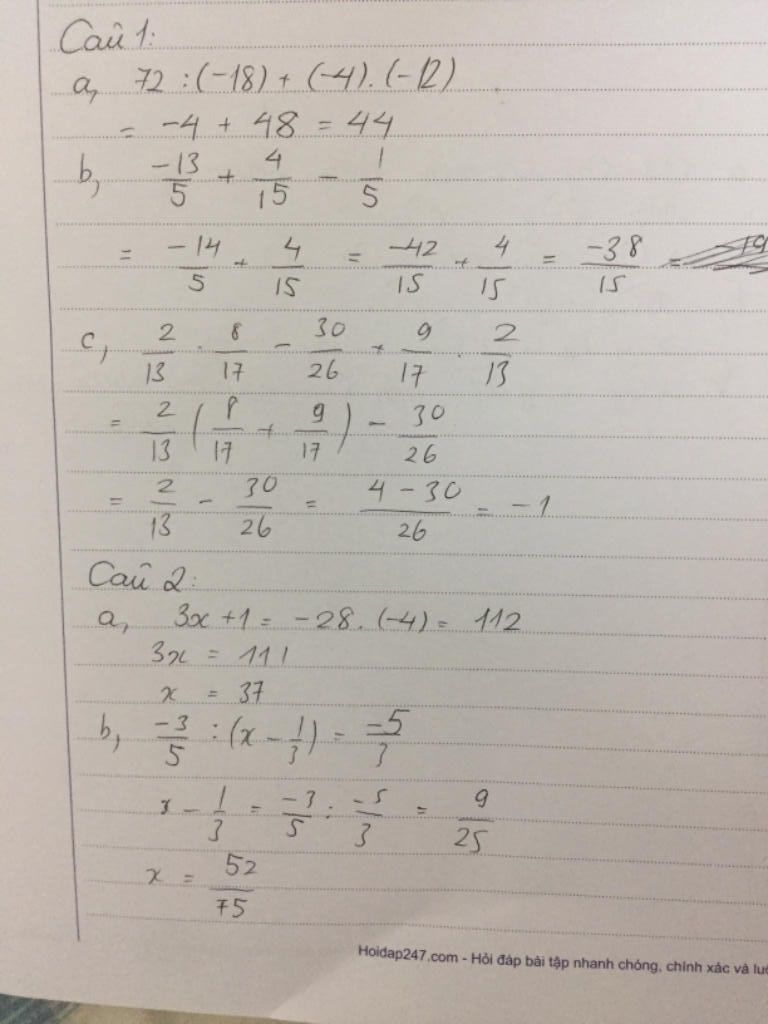 Câu 1:
a, 72 : (-18) + (-4) . (-12)
= -4 + 48 = 44
b, -13/5 + 4/15 - 1/5
= -14/5 + 4/15 = -42/15 + 4/15 = -38/15 =
c, 2/13 . 8/17 - 30/26 + 9/17 . 2/13
= 2/13 (8/17 + 9/17) - 30/26
= 2/13 - 30/26 = 4 - 30/26 = -1
Câu 2:
a, 3x + 1 = -28 . (-4) = 112
3x = 111
x = 37
b, -3/5 : (x - 1/3) = -5/3
x - 1/3 = -3/5 : -5/3 = 9/25
x = 52/75
Hoidap247.com - Hỏi đáp bài tập nhanh chóng, chính xác và